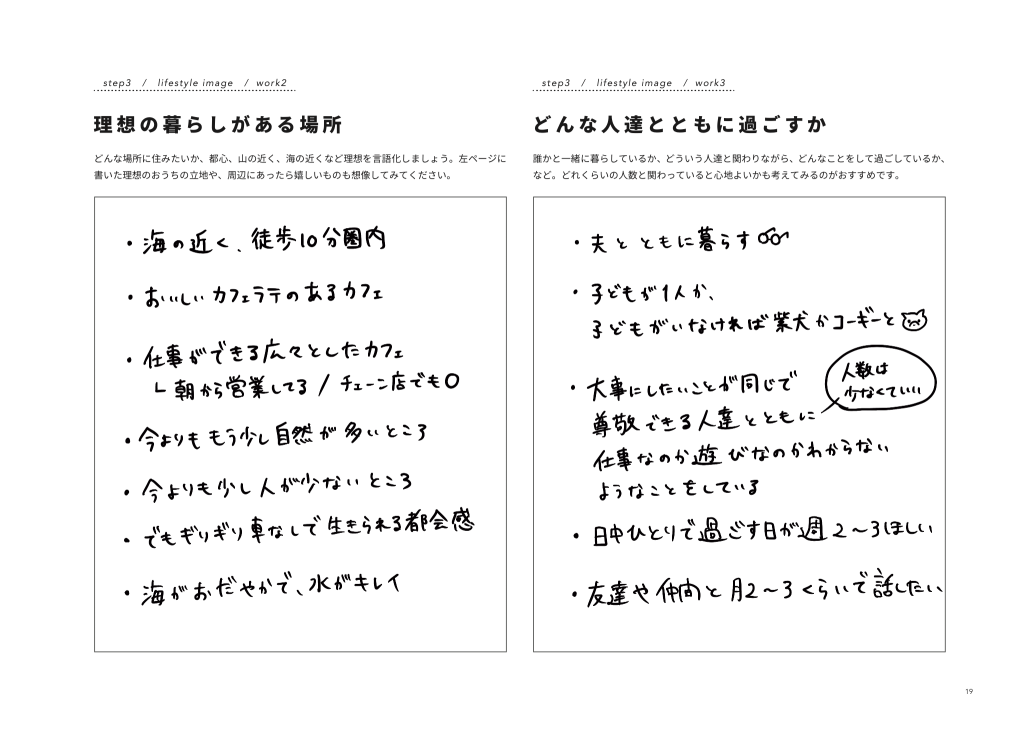 step3 / lifestyle image / work2
理想の暮らしがある場所
どんな場所に住みたいか、都心、山の近く、海の近くなど理想を言語化しましょう。左ページに
書いた理想のおうちの立地や、周辺にあったら嬉しいものも想像してみてください。
・海の近く、徒歩10分圏内
・おいしいカフェラテのあるカフェ
・仕事ができる広々としたカフェ
└朝から営業してる / チェーン店でも〇
・今よりももう少し自然が多いところ
・今よりも少し人が少ないところ
・でもギリギリ車なしで生きられる都会感
・海がおだやかで、水がキレイ
step3 / lifestyle image / work3
どんな人達とともに過ごすか
誰かと一緒に暮らしているか、どういう人達と関わりながら、どんなことをして過ごしているか、
など。どれくらいの人数と関わっていると心地よいかも考えてみるのがおすすめです。
・夫とともに暮らす
・子どもが1人か、
子どもがいなければ柴犬かコーギーと
・大事にしたいことが同じで
尊敬できる人達とともに
人数は
少なくていい
仕事なのか遊びなのかわからない
ようなことをしている
・日中ひとりで過ごす日が週2〜3ほしい
・友達や仲間と月2〜3くらいで話したい
19